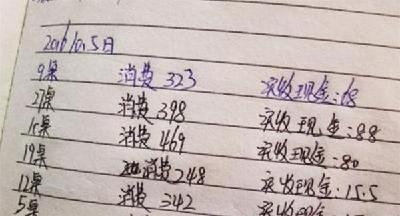 2016.10.5日
9桌 消费 323 实收现金:68
27桌 消费 398 实收现金:88
15桌 消费 469 实收现金:80
19桌 消费 248 实收现金:155
12桌 消费 342 实收现金
5桌